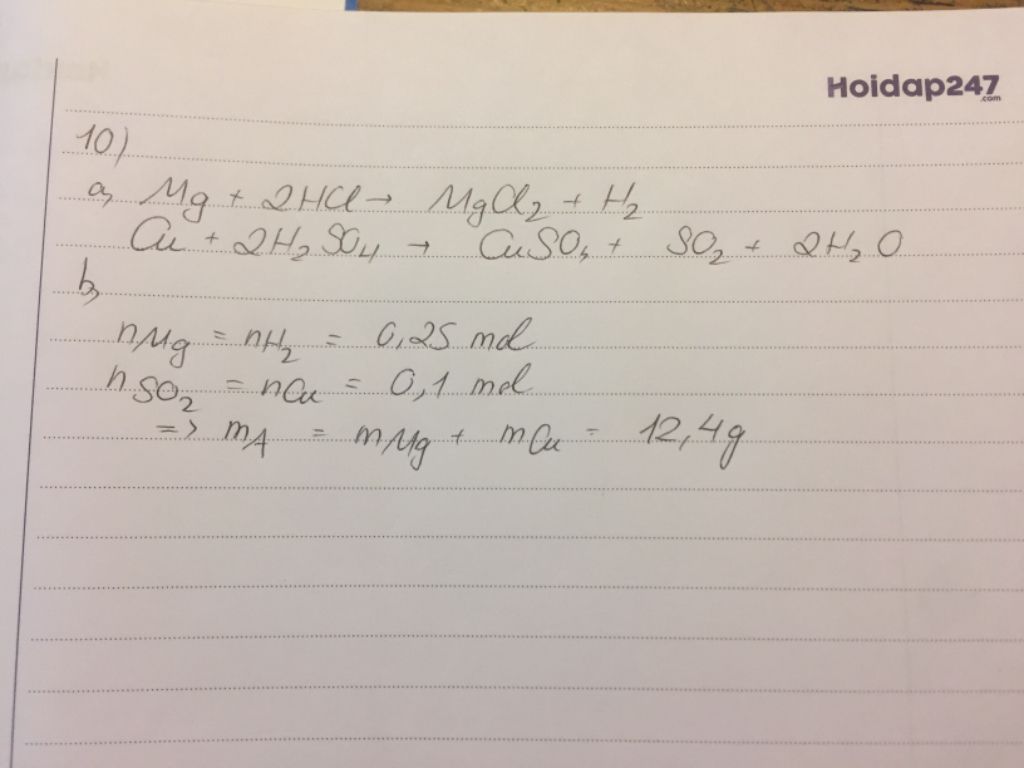 Hoidap247
.com
10)
a, Mg + 2HCl → MgCl₂ + H₂
Cu + 2H₂SO₄ → CuSO₄ + SO₂ + 2H₂O
b,
nMg = nH₂ = 0,25 mol
nSO₂ = nCu = 0,1 mol
=> mA = mMg + mCu = 12,4g